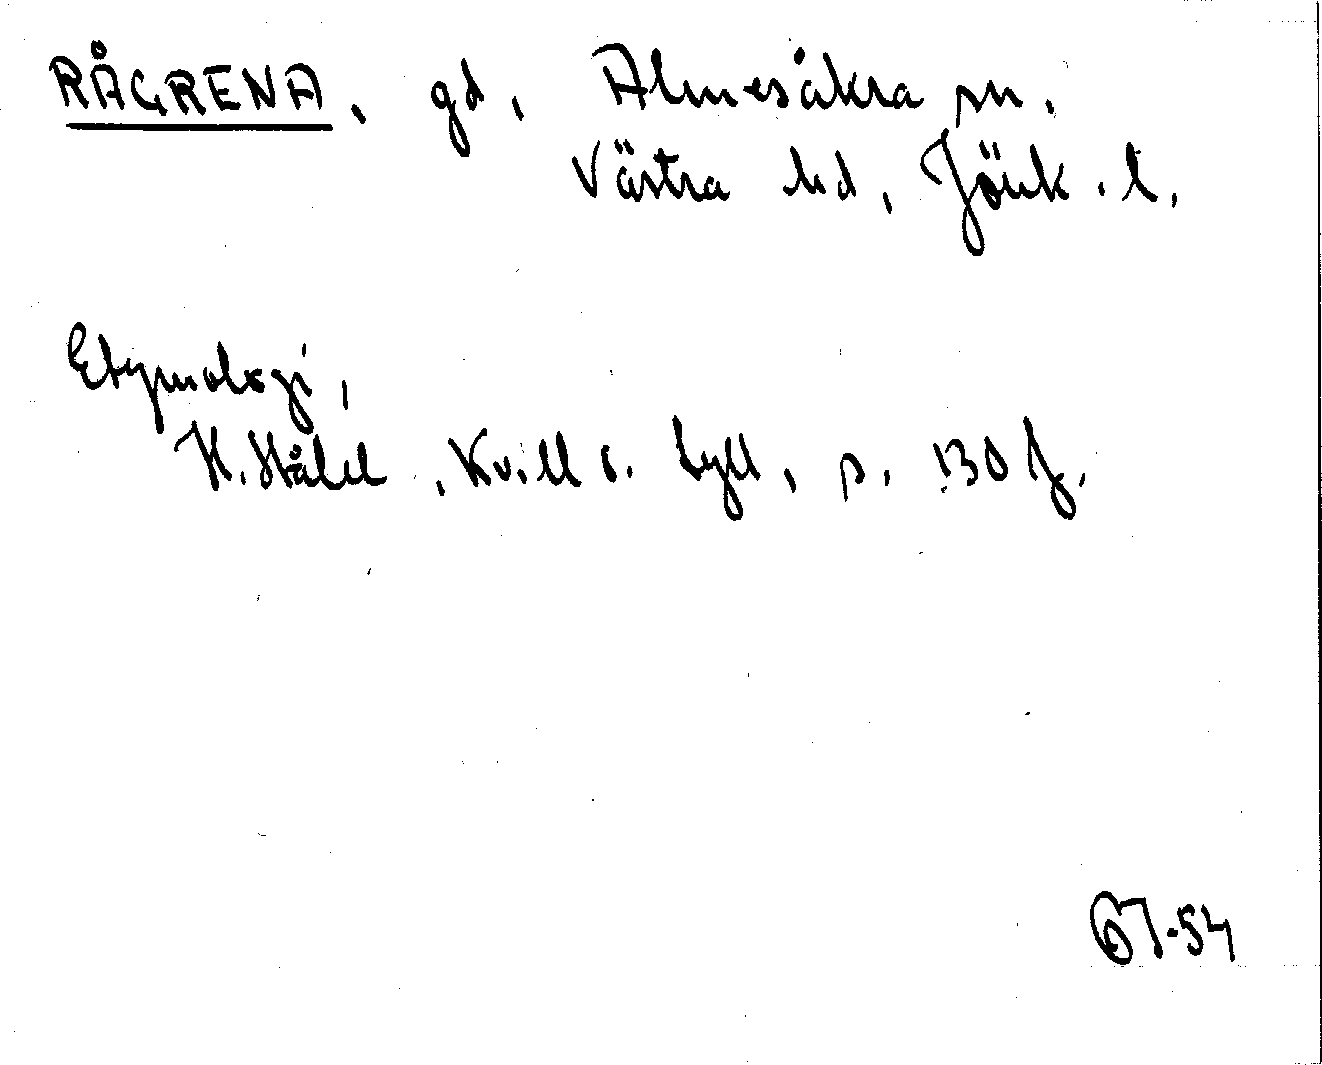 RÅGRENA, gd, Almesåkra sn.
Västra hd, Jönk. l.
Etymologi,
H. Ståhl, Kvill o. tyll, s. 130 f.
GT-54